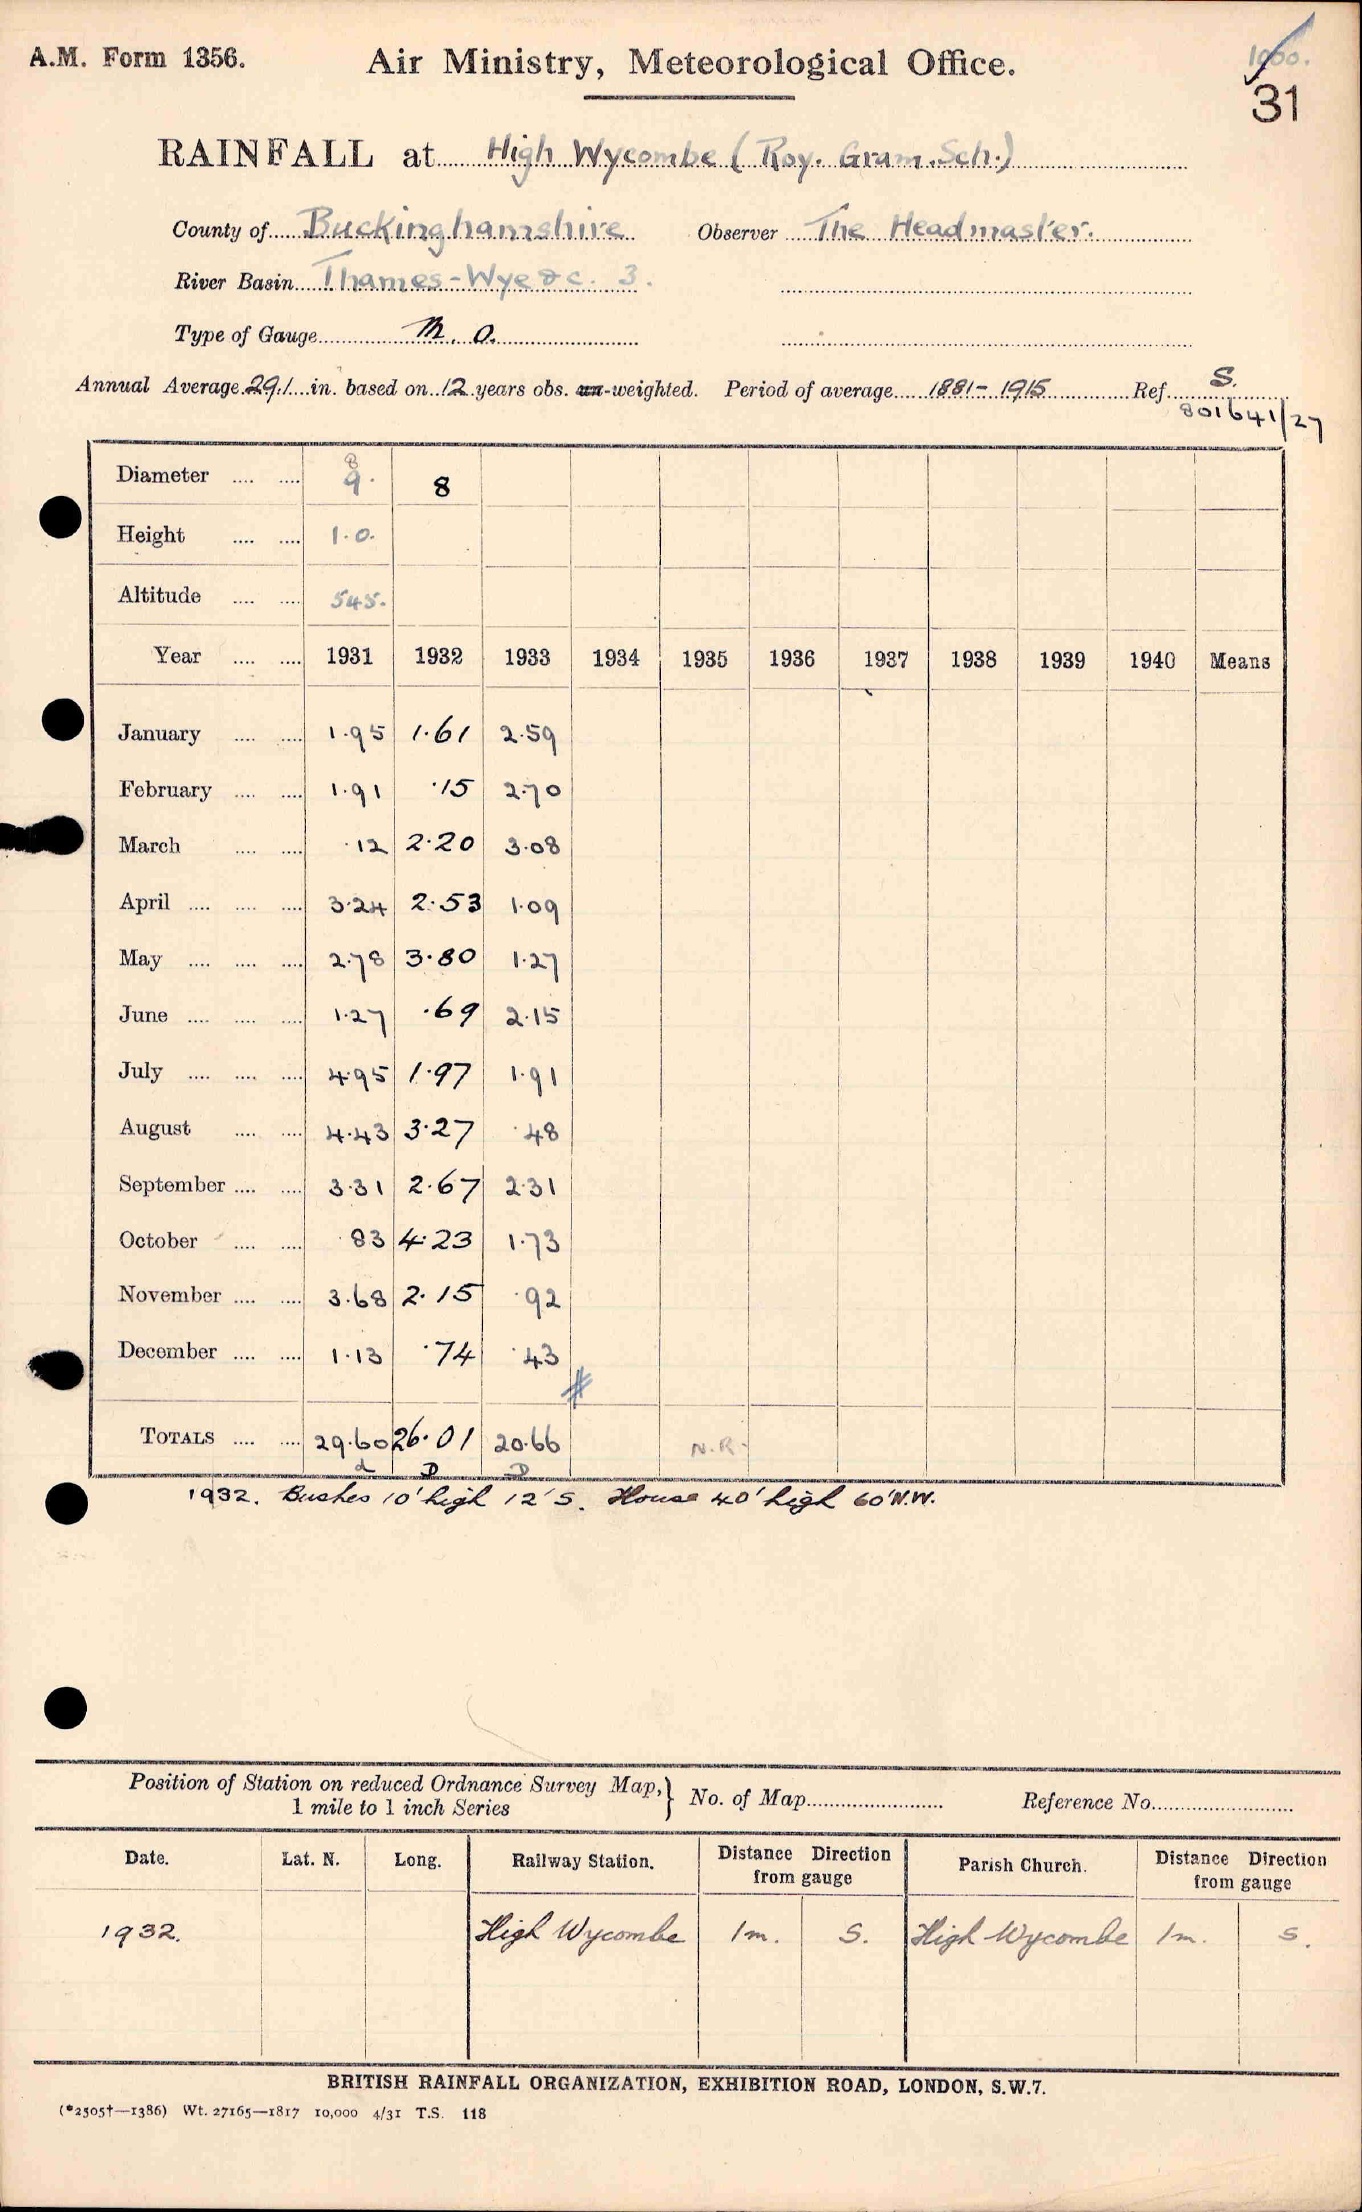 A.M. Form 1356.
Air Ministry, Meteorological Office.
1000.
31
RAINFALL at High Wycombe (Roy. Gram. Sch.)
County of Buckinghamshire Observer The Headmaster.
River Basin Thames-Wye &c. 3.
Type of Gauge M.O.
Annual Average 29.1 in. based on 12 years obs. un-weighted. Period of average 1881-1915 Ref. S.
801641/27
Diameter .... .... 8 9. 8
Height .... .... 1.0.
Altitude .... .... 545.
Year .... .... 1931 1932 1933 1934 1935 1936 1937 1938 1939 1940 Means
January .... .... 1.95 1.61 2.59
February .... .... 1.91 .15 2.70
March .... .... .12 2.20 3.08
April .... .... .... 3.24 2.53 1.09
May .... .... .... 2.78 3.80 1.27
June .... .... .... 1.27 .69 2.15
July .... .... .... 4.95 1.97 1.91
August .... .... 4.43 3.27 .48
September .... .... 3.31 2.67 2.31
October .... .... .83 4.23 1.73
November .... .... 3.68 2.15 .92
December .... .... 1.13 .74 .43
TOTALS .... .... 29.60 26.01 20.66 N.R.
d D D
1932. Bushes 10' high 12' S. House 40' high 60' N.W.
Position of Station on reduced Ordnance Survey Map, 1 mile to 1 inch Series } No. of Map Reference No.
Date. Lat. N. Long. Railway Station. Distance Direction from gauge Parish Church. Distance Direction from gauge
1932. High Wycombe 1m. S. High Wycombe 1m. S.
BRITISH RAINFALL ORGANIZATION, EXHIBITION ROAD, LONDON, S.W.7.
(*2505†—1386) Wt. 27165—1817 10,000 4/31 T.S. 118